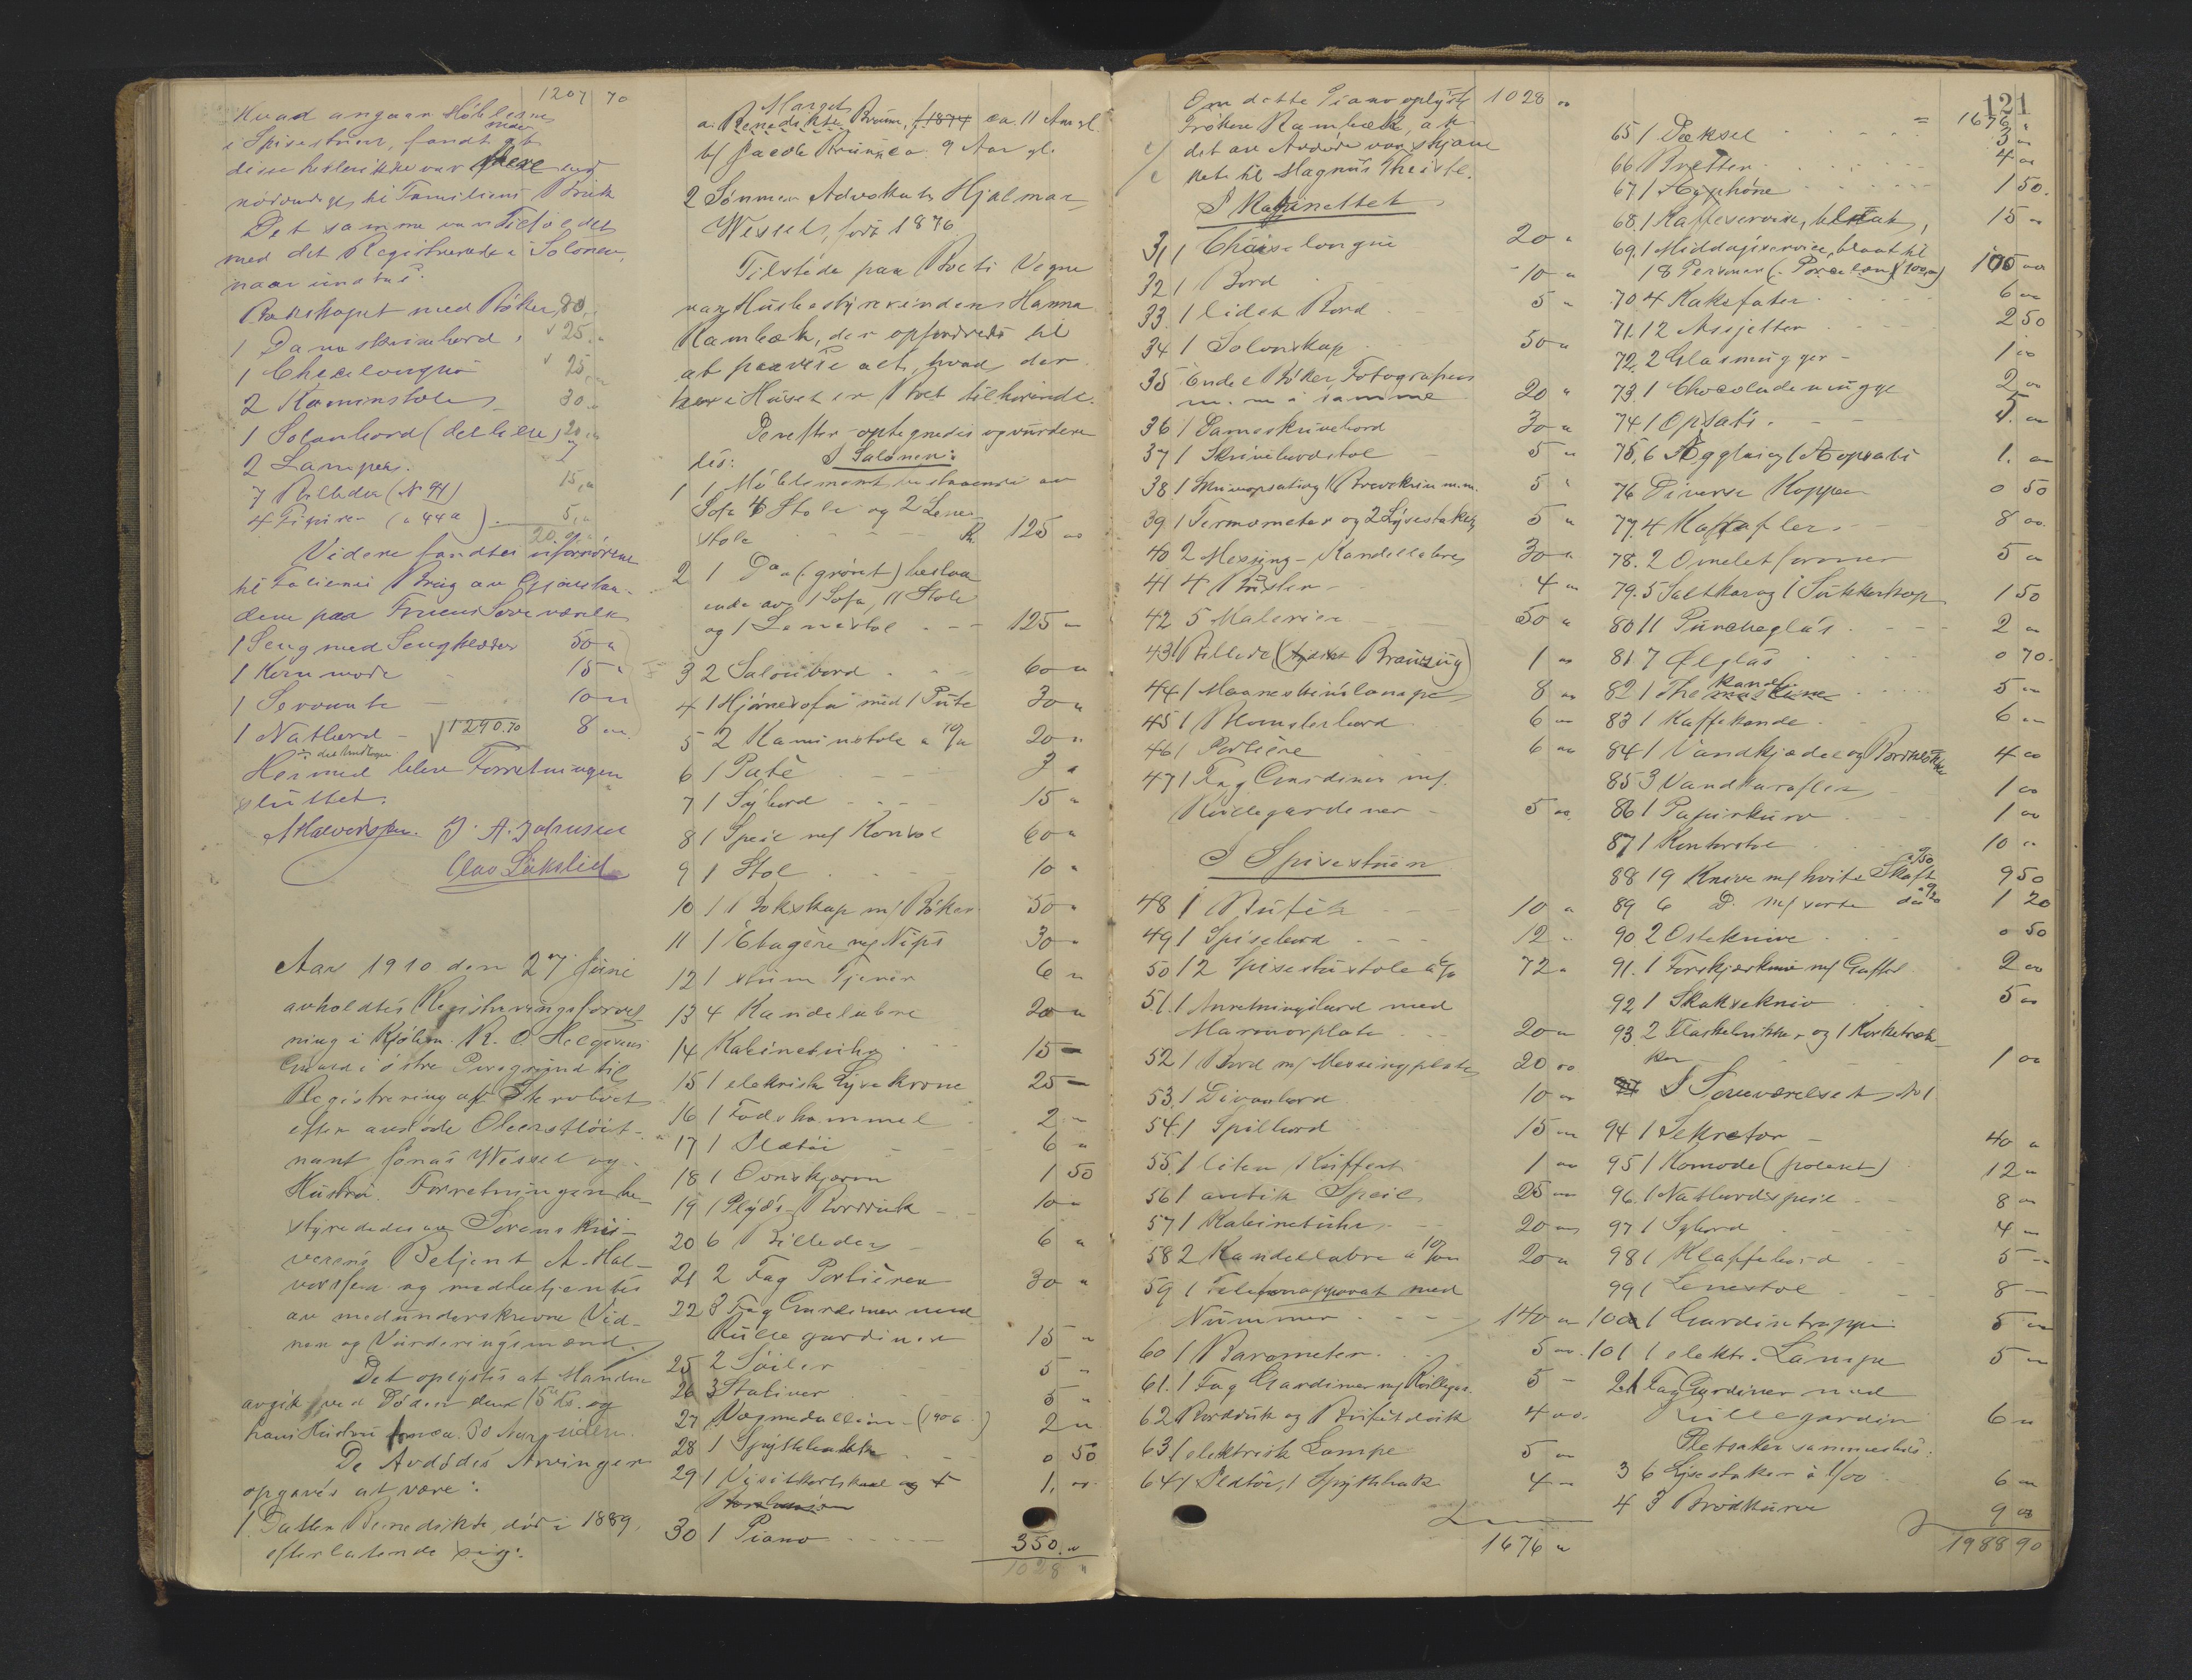 1207 70
Hvad angaar Möblerne
i Spisestuen, fandt at
disse heller ikke var mere end
nödvendigt til Familiens Bruk
Det samme var Tilfældet
med det Registrerede i Salonen,
naar undtas:
Bokskapet med Böker 80,
1 Dameskrivebord 25
1 Chaiselongue 25
2 Kaminstole 30
1 Salonbord (det lille) 20
2 Lamper 7
7 Billeder (N 41) 15
4 Figurer (" 44a) 5,
Videre fandtes
til Familiens Brug av Gjenstan-
dene paa Fruens Soveværelse
1 Seng med Sengklæder 50 "
1 Kommode 15 "
1 Servante 10 "
1 Natbord 1290.70 8 "
Hermed blev Forretningen
sluttet.
A Halvorsen. J. A. Johnsen
Olav Lükslid
Aar 1910 den 27 Juni
avholdtes Registreringsforret-
ning i Kjöbm. R. O. Helgesens
Gaard i östre Porsgrund til
Registrering af Sterboet
efter avdöde Oberstlöit-
nant Jonas Wessel og
Hustru. Forretningen be-
styrededes av Sorenskri-
verens Betjent A. Hal-
vorsen og medbetjentes
av medunderskrevne Vid-
ner og Vurderingsmænd.
Det oplystes at Manden
avgik ved Döden den 15 ds. og
hans Hustru for ca. 30 Aar siden.
De Avdödes Arvinger
opgaves at være:
1. Datter Benedikte, död i 1889,
efterlatende sig:
Margot
a. Benedikte Bruun, f. 1874 ca. 11 Aar gl.
b/ Jacob Bruun ca. 9 Aar gl.
2 Sönnen Advokat Hjalmar
Wessel, född 1876.
Tilstede paa Boets Vegne
var Husbestyrerinden Hanna
Rambæk, der opfordredes til
at paavise alt, hvad der
her i Huset er Boet tilhörende.
Derefter optegnedes og vurdere-
des: I Salonen:
1 1 Möblement bestaaende av
Sofa 6 Stole og 2 Lene-
stole Kr. 125 00
2 1 Do (grönt) bestaa
ende av 1 Sofa, 11 Stole
og 1 Lenestol 125 "
3 2 Salonbord 60 "
4 1 Hjörnesofa med 1 Pute 30 "
5 2 Kaminstole a 10/00 20 "
6 1 Puté 3 "
7 1 Sybord 15 "
8 1 Speil m/ Konsol 60 "
9 1 Stol 10 "
10 1 Bokskap m/ Böker 50 "
11 1 Etagére m/ Nips 30 "
12 1 stum Tjener 6 "
13 4 Kandelabre 20 "
14 Kabinetsuhr 15 "
15 1 elektrisk Lysekrone 25 "
16 1 Fodskammel 2 "
17 1 Ildtöi 6 "
18 1 Ovnskjærm 1 50
19 1 Plyds-Bordduk 10 "
20 6 Billeder 6 "
21 2 Fag Portièrer 30 "
22 3 Fag Gardiner med
Rullegardiner 15 "
25 2 Söiler 5 "
26 3 Stativer 5 "
27 Vægmedallion (1906) 2 "
28 1 Spytbakke 0 50
29 1 Visitkortskaal og 1 1. "
30 1 Piano 350. "
1028 "
Om dette Piano oplyste 1028 "
Fröken Rambæk, at
det av Avdöde var skjæn
ket til Magnus Theiste.
I Kabinettet
31 1 Chaiselongue 20 "
32 1 Bord 10 "
33 1 lidet Bord 5 "
34 1 Salonskap 50 "
35 Endel Böker Fotografier
m.m i samme 20 "
36 1 Dameskrivebord 30 "
37 1 Skrivebordstol 5 "
38 1 Skriveopsats og 1 Brevskrin m.m. 5 "
39 1 Termometer og 2 Lysestaker 5 "
40 2 Messing-Kandelabre 30 "
41 4 Buster 4 "
42 5 Malerier 50 "
43 1 Billede 1 "
44 1 Maaneskinslampe 8 "
45 1 Blomsterbord 6 "
46 1 Portière 6 "
47 1 Fag Gardiner m/
Rullegardiner 5 "
I Spisestuen
48 1 Bufet 10 "
49 1 Spisebord 12 "
50 12 Spisestustole a 6/00 72 "
51. 1 Anretningsbord med
Marmorplate 20 "
52 1 Bord m/ Messingplate 20 00
53. 1 Divanbord 10 "
54. 1 Spillbord 15 "
55. 1 liten Kuffert 1 "
56 1 antik Speil 25 "
57 1 Kabinetsuhr 20 "
58 2 Kandellabre a 10/00 20 "
59 1 Telefonapparat med
Nummer 140 "
60 1 Barometer 5 "
61. 1 Fag Gardiner m/ Rullegar. 5 "
62 Bordduk og Bufetduk 4 "
63 1 elektrisk Lampe 5 "
64 1 Ildtöi, 1 Spytbak 4 "
1676 "
121
1676 "
65 1 Dæksel 3 "
66 Bretter 4 "
67 1 1 50.
68. 1 Kaffeservise, blaat, 15 "
69. 1 Middagsservice, blaat til
18 Personer (Porcelæn) 100 "
70 4 Kakefater 6 "
71. 12 Assjetter 2 50
72. 2 Glasmugger 1 "
73. 1 Chocolademugge 2 "
74 1 Opsats 5. "
75. 6 Ægglas og 1 Ægopsats 1. "
76 Diverse Kopper 0 50
77. 4 Karafler 8 "
78. 2 Omeletformer 5 "
79. 5 Saltkar og 1 Sukkerkop 1 50
80 11 Puncheglas 2 "
81 7 Ölglas 0 70.
82 1 Thekande 5 "
83 1 Kaffekande 6 "
84 1 Vandkjedel og Bordklokke 4 "
85 3 Vandkarafler 1 "
86 1 Papirkurv 1 "
87 1 Kontorstol 10 "
88 19 Knive m/ hvite Skaft a 0/50 9 50
89 6 D. m/ sorte do a 0/20 1 20
90 2 Osteknive 0 50
91. 1 Forskjærkniv m/ Gaffel 2 "
92 1 Hakkekniv 5 "
93. 2 Flaskebrikker og 1 Korketræk-
ker 1 "
I Soveværelset No 1
94 1 Sekretær 40 "
95 1 Komode (poleret) 12 "
96. 1 Natbordspeil 8 "
97 1 Sybord 4 "
98 1 Klapbord 5 "
99 1 Lenestol 8 "
100 1 Gardintrappe 5 "
101 1 elektr. Lampe 5 "
2 1 Fag Gardiner med
Rullegardin 6 "
Pletsaker sammesteds.
3 6 Lysestaker à 1/00 6 "
4 3 Brödkurve 9 "
1988 90